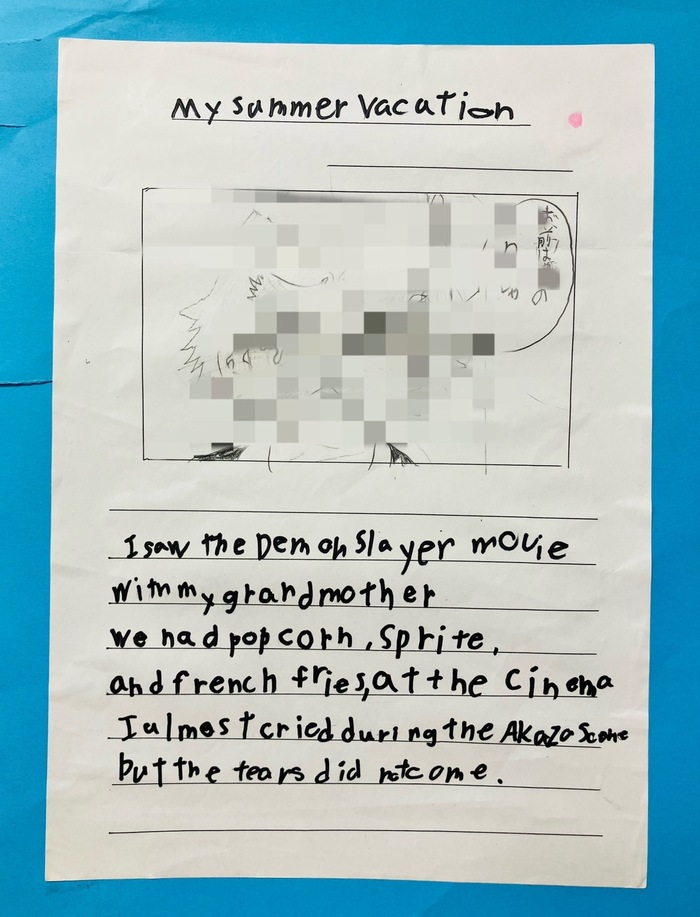 My summer vacation
お前は
の
I saw the Demon Slayer movie
with my grandmother
we had popcorn, Sprite,
and french fries, at the cinema
I almost cried during the Akaza Scene
but the tears did not come.